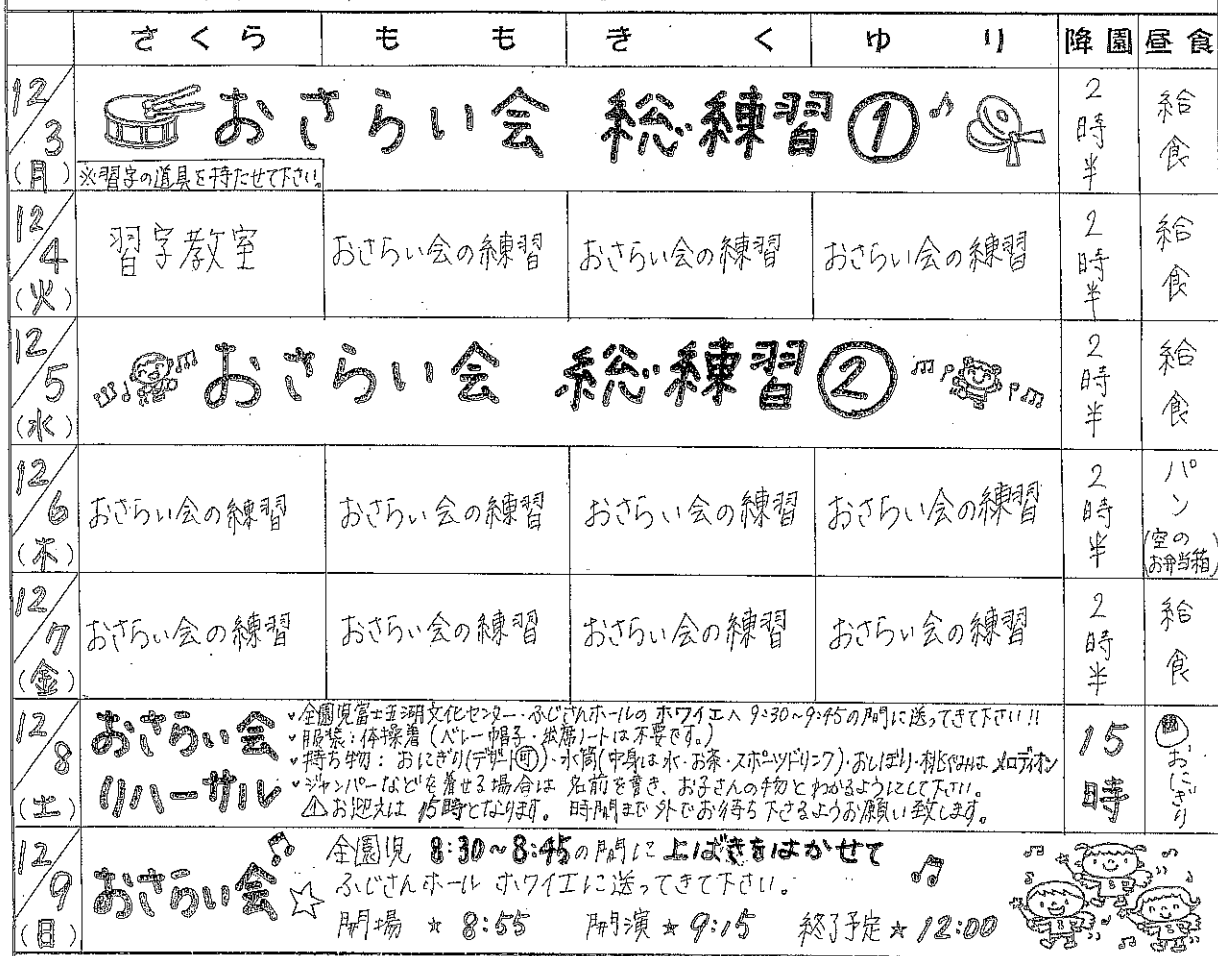 さくら もも きく ゆり 降園 昼食
12/3(月) おさらい会 総練習① 2時半 給食
※習字の道具を持たせて下さい。
12/4(火) 習字教室 おさらい会の練習 おさらい会の練習 おさらい会の練習 2時半 給食
12/5(水) おさらい会 総練習② 2時半 給食
12/6(木) おさらい会の練習 おさらい会の練習 おさらい会の練習 おさらい会の練習 2時半 パン(空のお弁当箱)
12/7(金) おさらい会の練習 おさらい会の練習 おさらい会の練習 おさらい会の練習 2時半 給食
12/8(土) おさらい会リハーサル 15時 おにぎり
全園児富士五湖文化センター・ふじさんホールのホワイエへ9:30~9:45の間に送ってきて下さい!!
服装:体操着(ベレー帽子・出席ノートは不要です。)
持ち物:おにぎり(デザート可)・水筒(中身は水・お茶・スポーツドリンク)・おしぼり・桃ぐみはメロディオン
ジャンパーなどを着せる場合は名前を書き、お子さんの物とわかるようにして下さい。
⚠お迎えは15時となります。時間まで外でお待ち下さるようお願い致します。
12/9(日) おさらい会☆
全園児 8:30~8:45の間に上ばきをはかせて
ふじさんホール ホワイエに送ってきて下さい。
開場★8:55 開演★9:15 終了予定★12:00